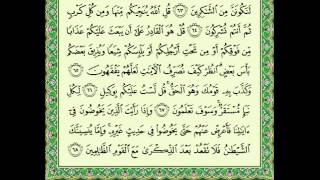 لَنَكُونَنَّ مِنَ الشَّاكِرِينَ ٦٣ قُلِ اللَّهُ يُنَجِّيكُم مِّنْهَا وَمِن كُلِّ كَرْبٍ
ثُمَّ أَنتُمْ تُشْرِكُونَ ٦٤ قُلْ هُوَ الْقَادِرُ عَلَىٰ أَن يَبْعَثَ عَلَيْكُمْ عَذَابًا
مِّن فَوْقِكُمْ أَوْ مِن تَحْتِ أَرْجُلِكُمْ أَوْ يَلْبِسَكُمْ شِيَعًا وَيُذِيقَ بَعْضَكُم
بَأْسَ بَعْضٍ انظُرْ كَيْفَ نُصَرِّفُ الْآيَاتِ لَعَلَّهُمْ يَفْقَهُونَ ٦٥
وَكَذَّبَ بِهِ قَوْمُكَ وَهُوَ الْحَقُّ قُل لَّسْتُ عَلَيْكُم بِوَكِيلٍ ٦٦ لِّكُلِّ
نَبَإٍ مُّسْتَقَرٌّ وَسَوْفَ تَعْلَمُونَ ٦٧ وَإِذَا رَأَيْتَ الَّذِينَ يَخُوضُونَ فِي
آيَاتِنَا فَأَعْرِضْ عَنْهُمْ حَتَّىٰ يَخُوضُوا فِي حَدِيثٍ غَيْرِهِ وَإِمَّا يُنسِيَنَّكَ
الشَّيْطَانُ فَلَا تَقْعُدْ بَعْدَ الذِّكْرَىٰ مَعَ الْقَوْمِ الظَّالِمِينَ ٦٨